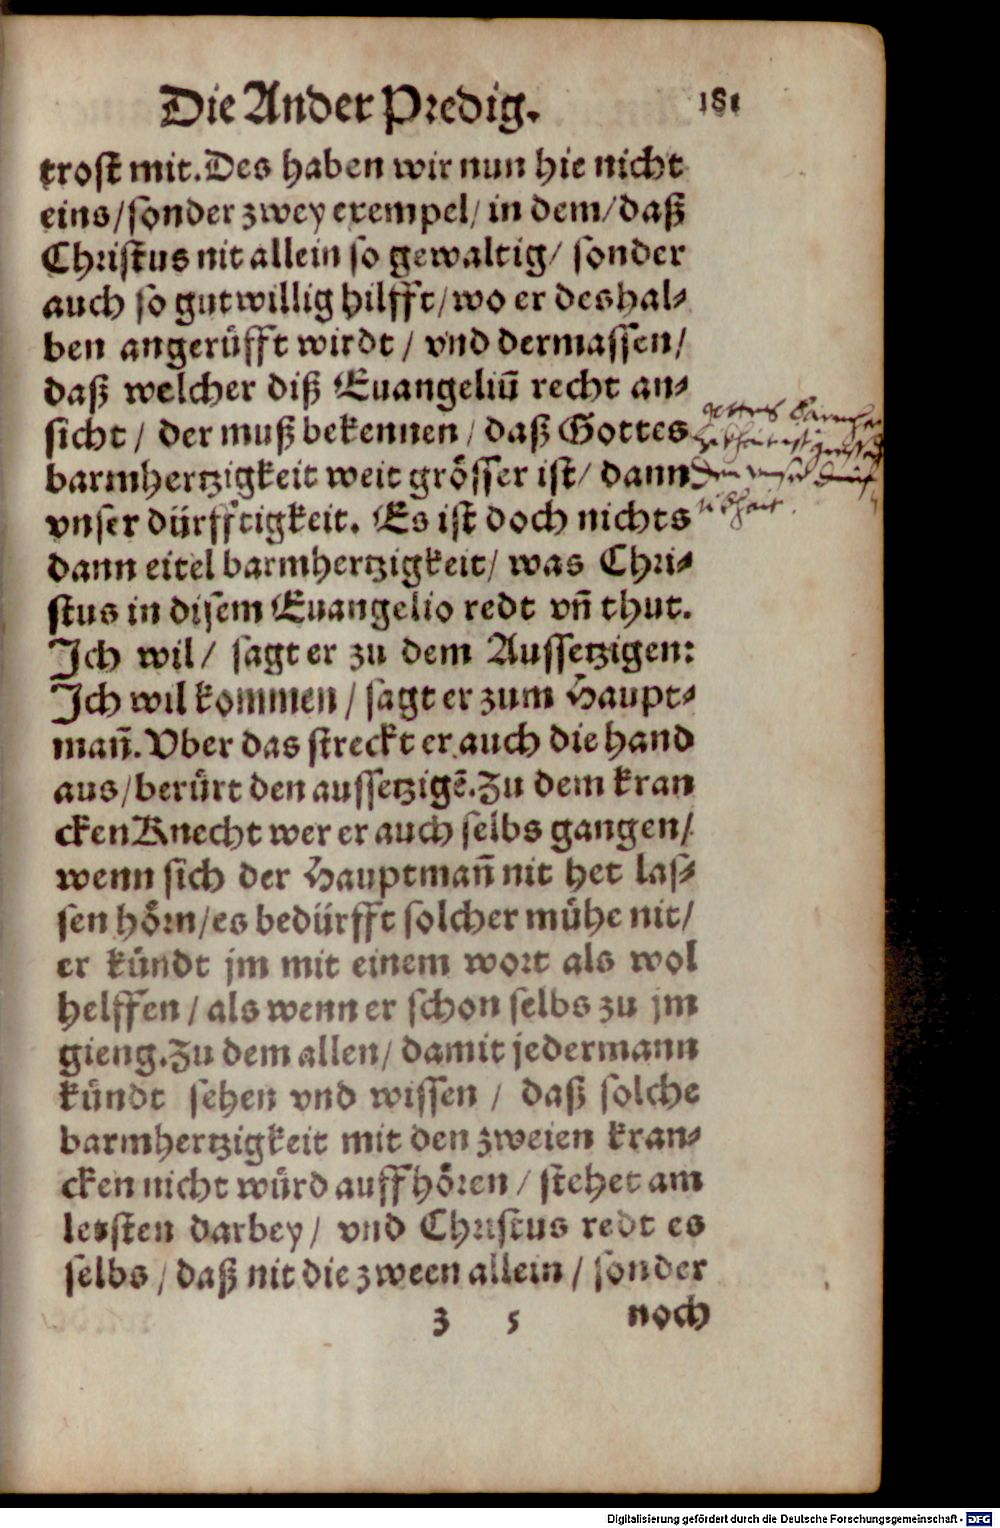 Die Ander Predig. 181
trost mit. Des haben wir nun hie nicht
eins / sonder zwey exempel / in dem / daß
Christus nit allein so gewaltig / sonder
auch so gutwillig hilfft / wo er deshal⸗
ben angerüfft wirdt / vnd dermassen /
daß welcher diß Euangeliū recht an⸗
sicht / der muß bekennen / daß Gottes
barmhertzigkeit weit grösser ist / dann
vnser dürfftigkeit. Es ist doch nichts
dann eitel barmhertzigkeit / was Chri⸗
stus in disem Euangelio redt vñ thut.
Ich wil / sagt er zu dem Aussetzigen:
Ich wil kommen / sagt er zum Haupt⸗
mañ. Vber das streckt er auch die hand
aus / berürt den aussetzigē. Zu dem kran
cken Knecht wer er auch selbs gangen /
wenn sich der Hauptmañ nit het las⸗
sen hörn / es bedürfft solcher mühe nit /
er kündt jm mit einem wort als wol
helffen / als wenn er schon selbs zu jm
gieng. Zu dem allen / damit jedermann
kündt sehen vnd wissen / daß solche
barmhertzigkeit mit den zweien kran⸗
cken nicht würd auffhören / stehet am
letsten darbey / vnd Christus redt es
selbs / daß nit die zween allein / sonder
Z 5 noch
gottes barmher
den unser
Digitalisierung gefördert durch die Deutsche Forschungsgemeinschaft - DFG